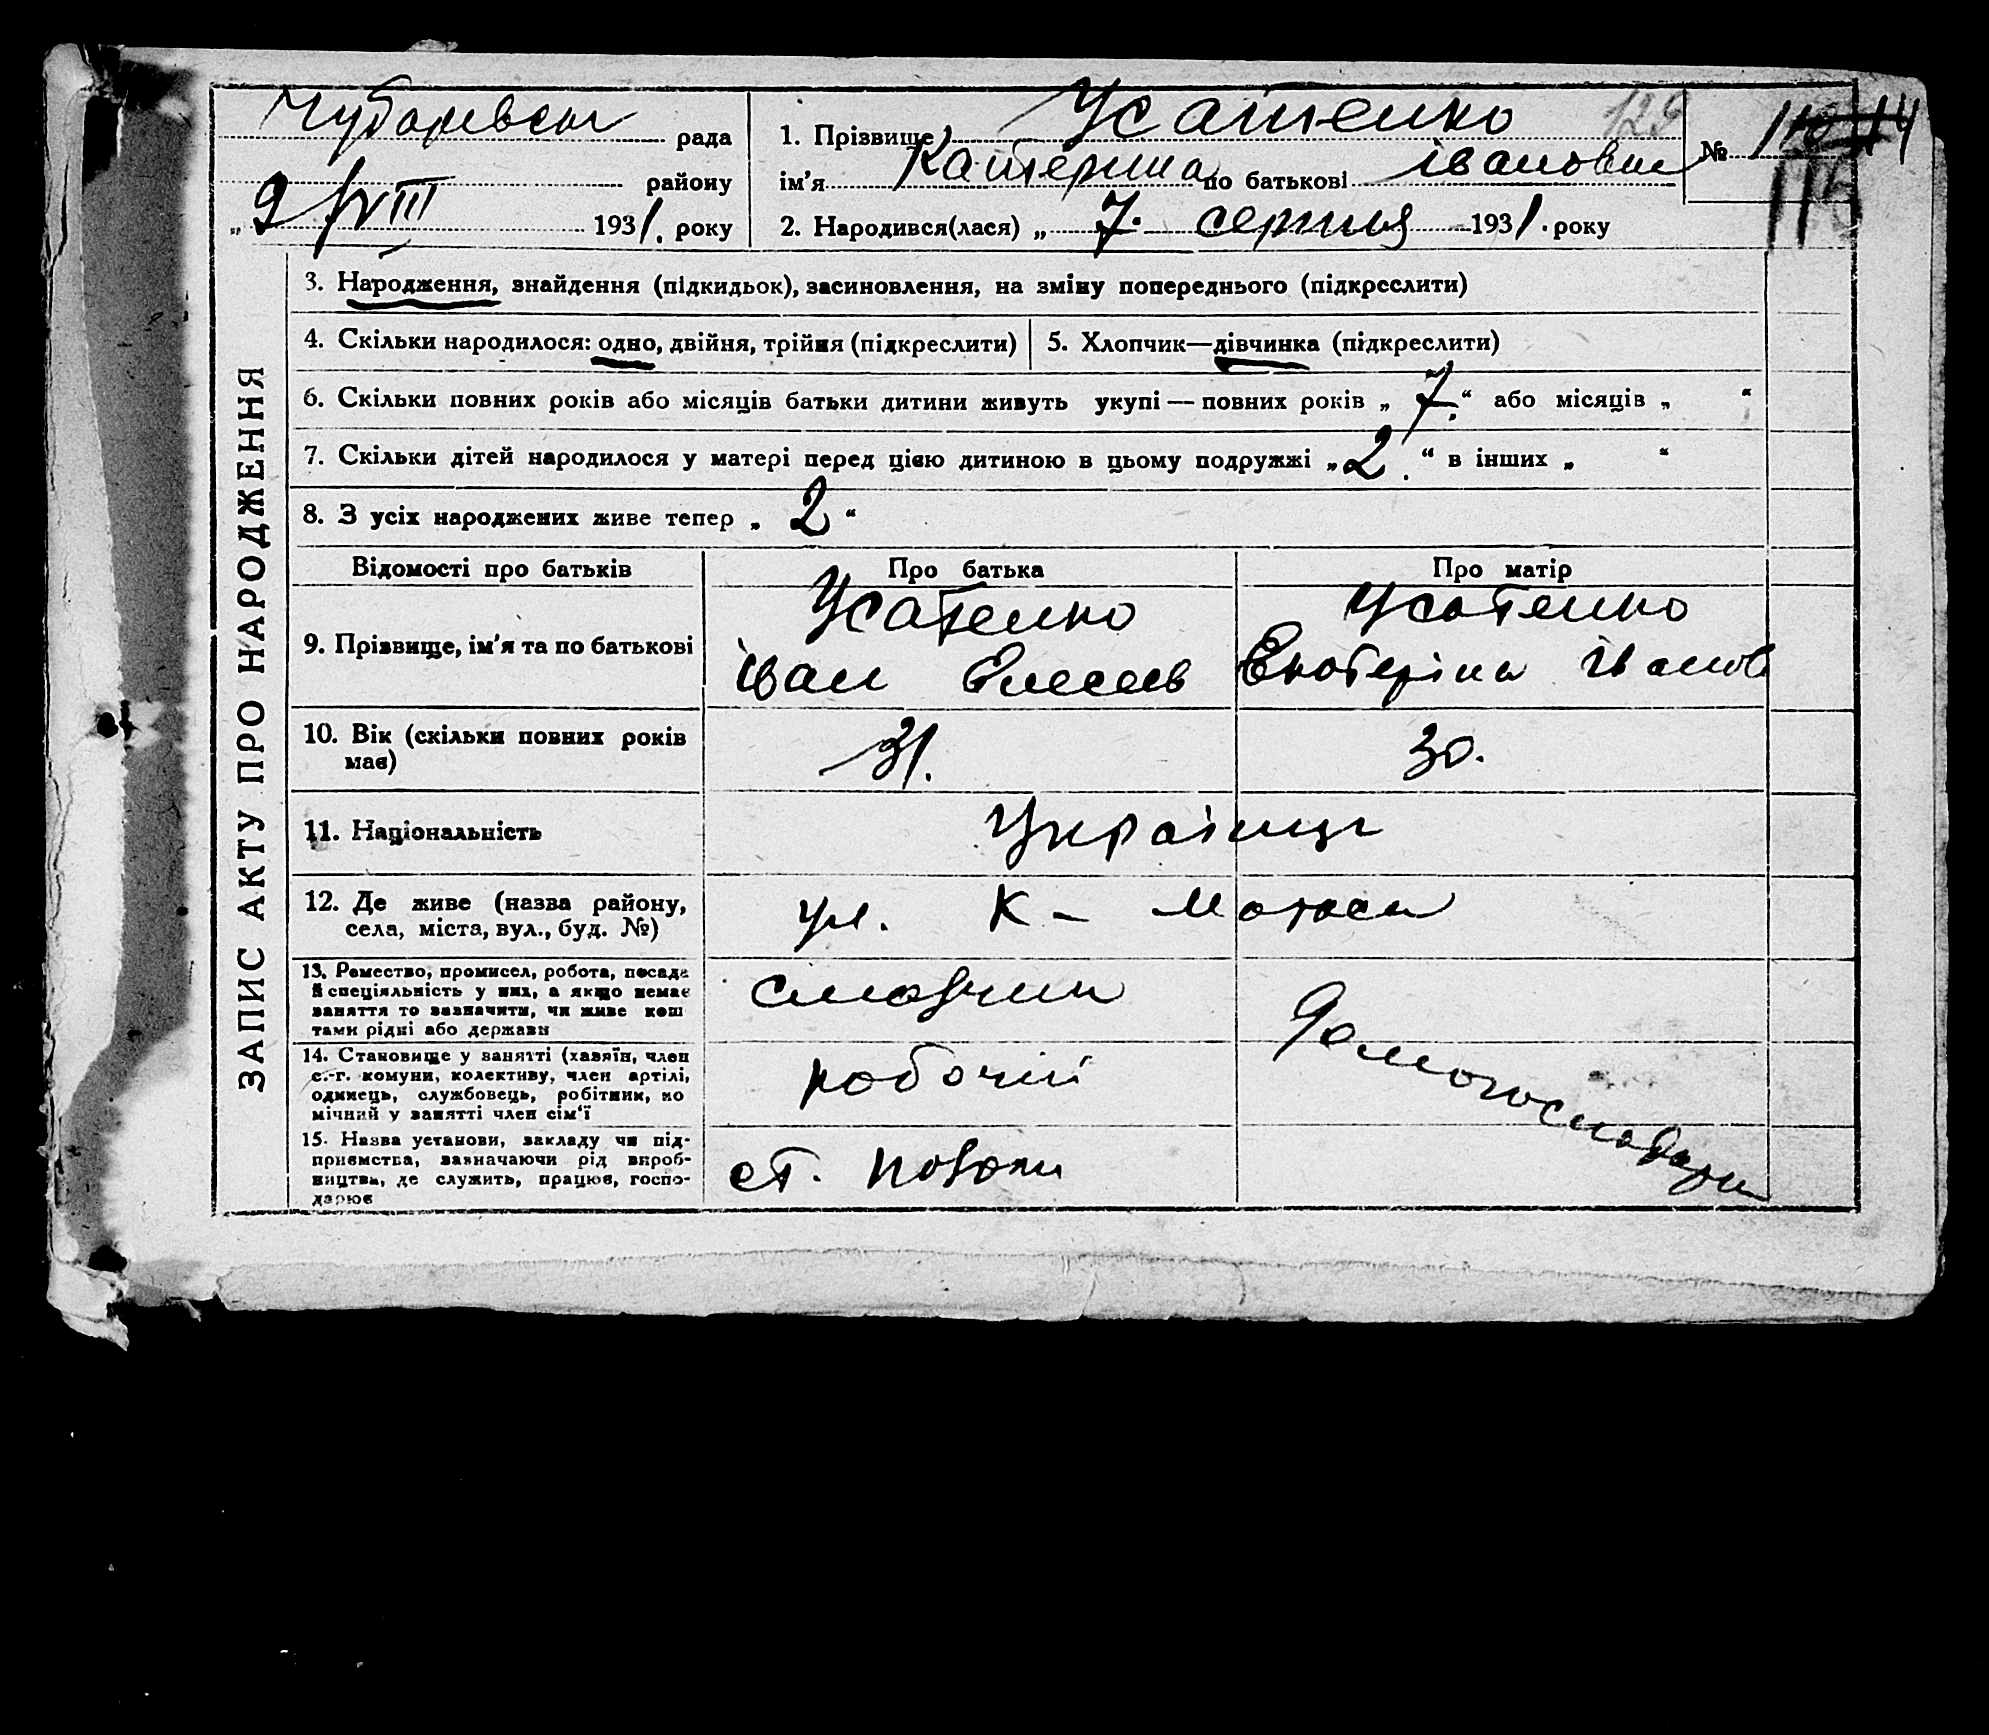 Чубарівськ рада
району
„9/VIII 1931. року
1. Прізвище Усатенко
ім'я Катерина по батькові Івановна
2. Народився(лася) „7. серпня 1931. року
№
115
ЗАПИС АКТУ ПРО НАРОДЖЕННЯ
3. Народження, знайдення (підкидьок), засиновлення, на зміну попереднього (підкреслити)
4. Скільки народилося: одно, двійня, трійня (підкреслити)
5. Хлопчик—дівчинка (підкреслити)
6. Скільки повних років або місяців батьки дитини живуть укупі — повних років „7.“ або місяців „ “
7. Скільки дітей народилося у матері перед цією дитиною в цьому подружжі „2.“ в інших „ “
8. З усіх народжених живе тепер „2“
Відомості про батьків Про батька Про матір
9. Прізвище, ім'я та по батькові
Усатенко
Іван Елесеев
Усатенко
Екатеріна Іванов
10. Вік (скільки повних років
має)
31.
30.
11. Національність
Українці
12. Де живе (назва району,
села, міста, вул., буд. №)
ул. К –
13. Ремество, промисел, робота, посада
й спеціяльність у них, а якщо немає
заняття то зазначити, чи живе кош
тами рідні або держави
14. Становище у занятті (хазяїн, член
с.-г. комуни, колективу, член артілі,
одинець, службовець, робітник, по
мічний у занятті член сім'ї
робочий
15. Назва установи, закладу чи під-
приємства, зазначаючи рід вироб-
ництва, де служить, працює, госпо-
дарює
ст. Пологи
Домогосподарка